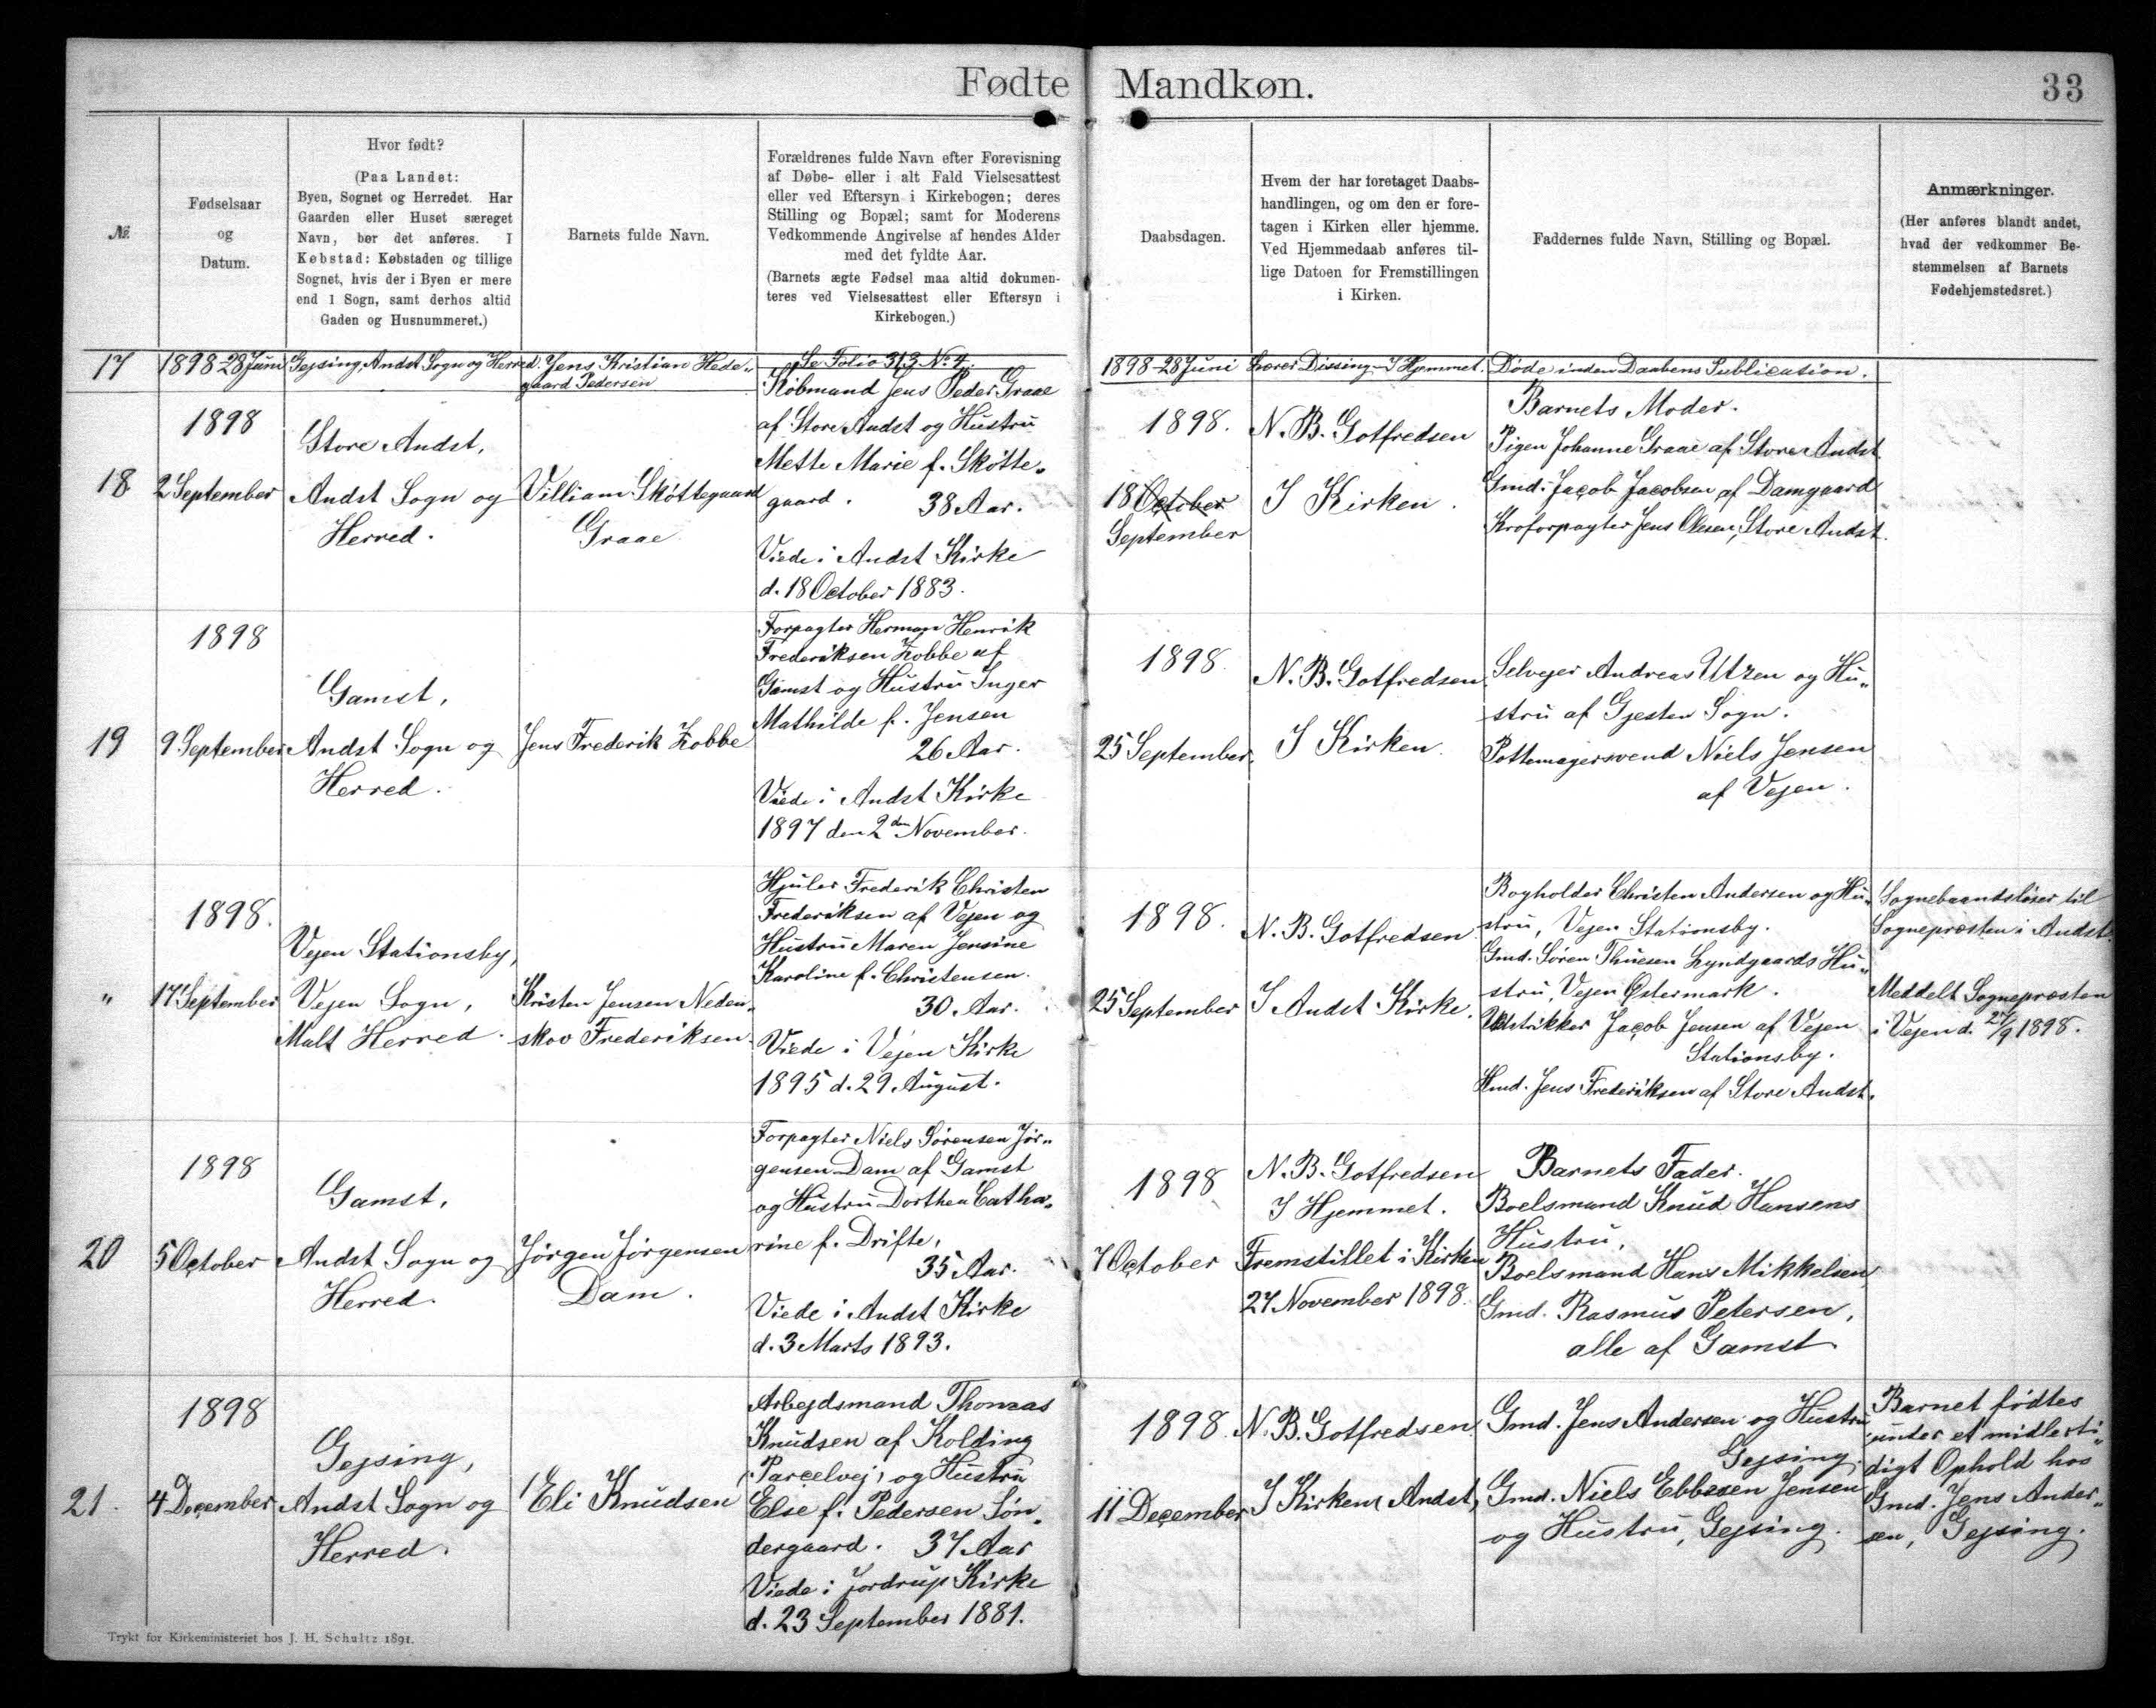 Fødte Mandkøn.
33
№
Fødselsaar
og
Datum.
Hvor født?
(Paa Landet:
Byen, Sognet og Herredet. Har
Gaarden eller Huset særeget
Navn, bør det anføres. I
Købstad: Købstaden og tillige
Sognet, hvis der i Byen er mere
end 1 Sogn, samt derhos altid
Gaden og Husnummeret.)
Barnets fulde Navn.
Forældrenes fulde Navn efter Forevisning
af Døbe- eller i alt Fald Vielsesattest
eller ved Eftersyn i Kirkebogen; deres
Stilling og Bopæl; samt for Moderens
Vedkommende Angivelse af hendes Alder
med det fyldte Aar.
(Barnets ægte Fødsel maa altid dokumen-
teres ved Vielsesattest eller Eftersyn i
Kirkebogen.)
Daabsdagen.
Hvem der har foretaget Daabs-
handlingen, og om den er fore-
tagen i Kirken eller hjemme.
Ved Hjemmedaab anføres til-
lige Datoen for Fremstillingen
i Kirken.
Faddernes fulde Navn, Stilling og Bopæl.
Anmærkninger.
(Her anføres blandt andet,
hvad der vedkommer Be-
stemmelsen af Barnets
Fødehjemstedsret.)
17
1898-28 Juni
Gejsing, Andst Sogn og Herred.
Jens Kristian Hede„
gaard Pedersen
Se Folio 313 No 4.
1898-28 Juni
Lærer Dissing - I Hjemmet.
Døde inden Daabens Publication.
18
1898
2 September
Store Andst,
Andst Sogn og
Herred.
Villiam Skøttegaard
Graae
Købmand Jens Peder Graae
af Store Andst og Hustru
Mette Marie f. Skøtte„
gaard. 38 Aar.
Viede i Andst Kirke
d. 18 October 1883.
1898.
18 October
September
N. B. Gotfredsen
I Kirken.
Barnets Moder.
Pigen Johanne Graae af Store Andst.
Gmd. Jacob Jacobsen af Damgaard
Kroforpagter Jens Olesen, Store Andst.
19
1898
9 September
Gamst,
Andst Sogn og
Herred.
Jens Frederik Zobbe
Forpagter Herman Henrik
Frederiksen Zobbe af
Gamst og Hustru Inger
Mathilde f. Jensen
26 Aar.
Viede i Andst Kirke
1897 den 2den November.
1898.
25 September.
N. B. Gotfredsen.
I Kirken.
Selvejer Andreas Utzen og Hu„
stru af Gjesten Sogn.
Pottemagersvend Niels Jensen
af Vejen.
„
1898.
17 September
Vejen Stationsby,
Vejen Sogn,
Malt Herred.
Kristen Jensen Neden„
skov Frederiksen.
Hjuler Frederik Christen
Frederiksen af Vejen og
Hustru Maren Jensine
Karoline f. Christensen.
30 Aar.
Viede i Vejen Kirke
1895 d. 29 August.
1898.
25 September
N. B. Gotfredsen.
I Andst Kirke.
Bogholder Christen Andersen og Hu„
stru, Vejen Stationsby.
Gmd. Søren Thuesen Lyndgaards Hu„
stru, Vejen Østermark.
Udstikker Jacob Jensen af Vejen
Stationsby.
Hmd. Jens Frederiksen af Store Andst.
Sognebaandsløser til
Sognepræsten i Andst.
Meddelt Sognepræsten
i Vejen d. 27/9 1898.
20
1898
5 October
Gamst,
Andst Sogn og
Herred.
Jørgen Jørgensen
Dam.
Forpagter Niels Sørensen Jør„
gensen Dam af Gamst
og Hustru Dorthea Catha„
rine f. Drifte,
35 Aar.
Viede i Andst Kirke
d. 3 Marts 1893.
1898
7 October
N. B. Gotfredsen
I Hjemmet.
Fremstillet i Kirken
27 November 1898.
Barnets Fader.
Boelsmand Knud Hansens
Hustru,
Boelsmand Hans Mikkelsen,
Gmd. Rasmus Petersen,
alle af Gamst.
21.
1898
4 December
Gejsing,
Andst Sogn og
Herred.
Eli Knudsen
Arbejdsmand Thomas
Knudsen af Kolding
(Parcelvej) og Hustru
Else f. Pedersen Søn„
dergaard. 37 Aar
Viede i Jordrup Kirke
d. 23 September 1881.
1898.
11 December
N. B. Gotfredsen.
I Kirken, Andst,
Gmd. Jens Andersen og Hustru,
Gejsing.
Gmd. Niels Ebbesen Jensen
og Hustru, Gejsing.
Barnet fødtes
under et midlerti„
digt Ophold hos
Gmd. Jens Ander„
sen, Gejsing.
Trykt for Kirkeministeriet hos J. H. Schultz 1891.